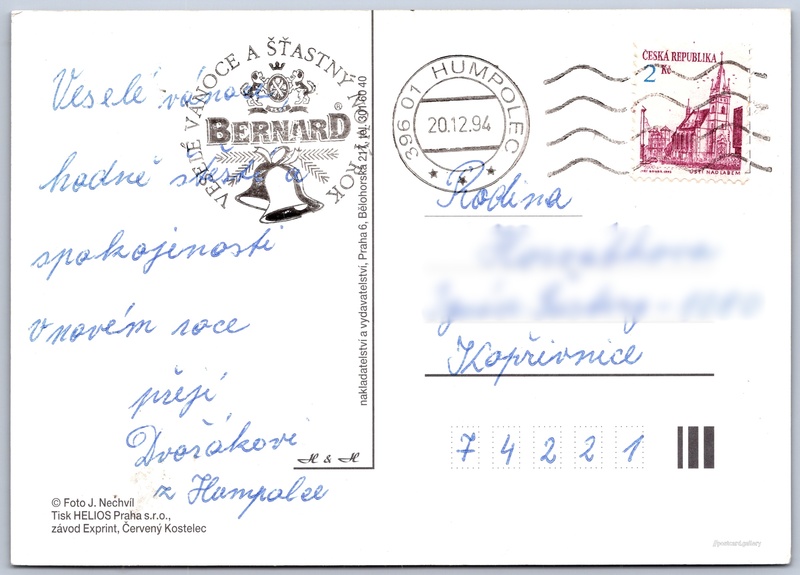 Veselé vánoce
hodně štěstí a
spokojenosti
v novém roce
přejí
Dvořákovi
z Humpolce
© Foto J. Nečhvíl
Tisk HELIOS Praha s.r.o.,
závod Exprint, Červený Kostelec
VESELÉ VÁNOCE A ŠŤASTNÝ N. ROK
BERNARD
®
H & H
nakladatelství a vydavatelství, Praha 6, Bělohorská 217, tel. 301 60 40
396 01 HUMPOLEC
20.12.94
ČESKÁ REPUBLIKA
2 Kč
ÚSTÍ NAD LABEM
Rodina
Kopřivnice
7 4 2 2 1